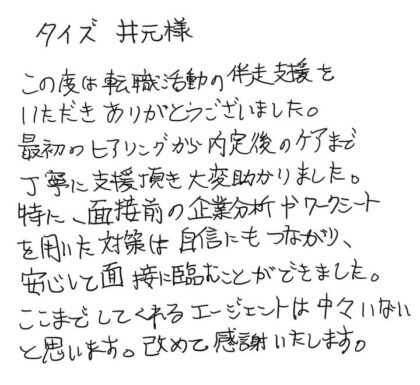 タイズ 井元様
この度は転職活動の伴走支援を
いただきありがとうございました。
最初のヒアリングから内定後のケアまで
丁寧に支援頂き大変助かりました。
特に、面接前の企業分析やワークシート
を用いた対策は自信にもつながり、
安心して面接に臨むことができました。
ここまでしてくれるエージェントは中々いない
と思います。改めて感謝いたします。